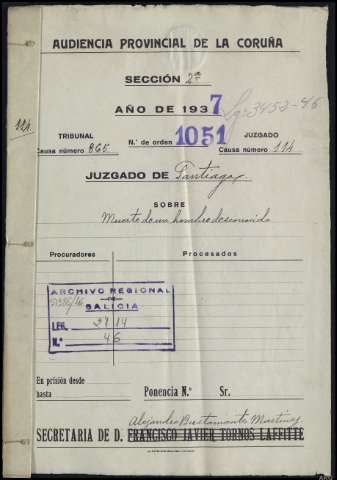 AUDIENCIA PROVINCIAL DE LA CORUÑA
SECCIÓN 2ª
AÑO DE 1937
Lg: 3453-46
124
TRIBUNAL
Causa número 865
N.º de orden 1051
JUZGADO
Causa número 114
JUZGADO DE Santiago
SOBRE
Muerte de un hombre desconocido
Procuradores
Procesados
ARCHIVO REGIONAL
DE
GALICIA
LEG.
N.º 46
En prisión desde
hasta
Ponencia N.º Sr.
Alejandro Bustamante Martinez
SECRETARIA DE D. FRANCISCO JAVIER TORNOS LAFFITTE